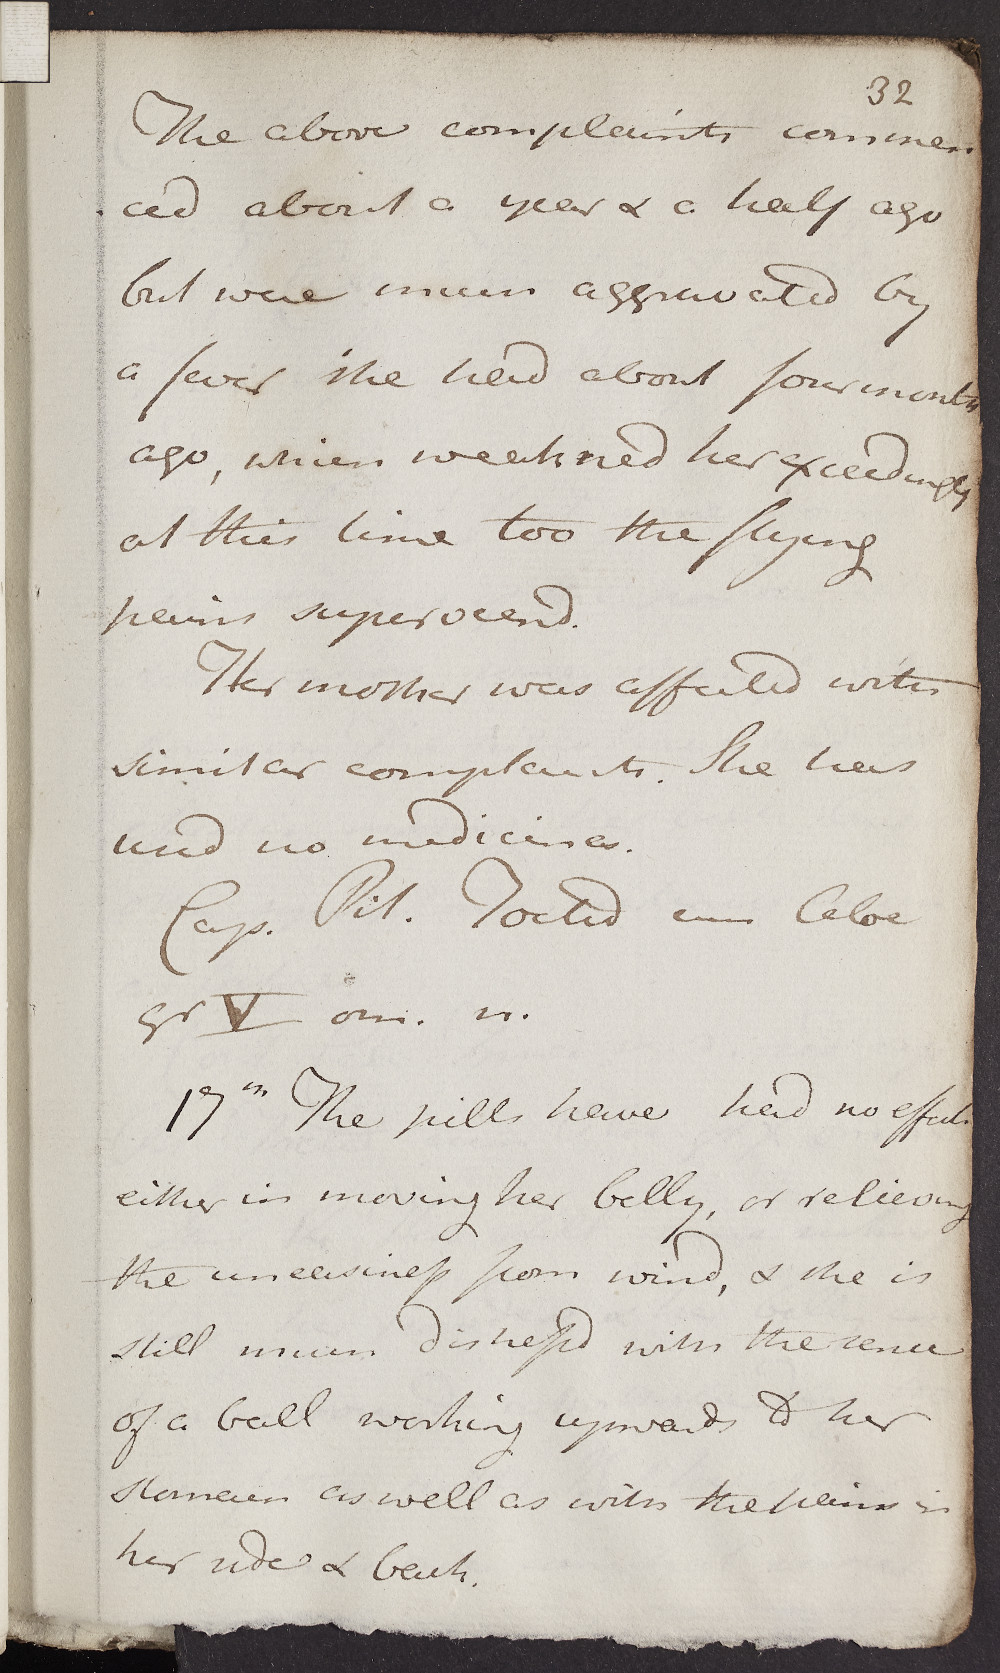 32
The above complaints commen
ced about a year & a half ago
but were much aggravated by
a fever she had about four months
ago, which weakned her exceedingly
at this time too the flying
pains supervened.
Her mother was affected with
similar complaints. She has
used no medicines.
Cap. Pil. Foetid cum Aloe
gr V om. n.
17th The pills have had no effects
either in moving her belly, or relieving
the uneasiness from wind, & she is
still much distressd with the sense
of a ball working upwards to her
stomach as well as with the pains in
her side & back.